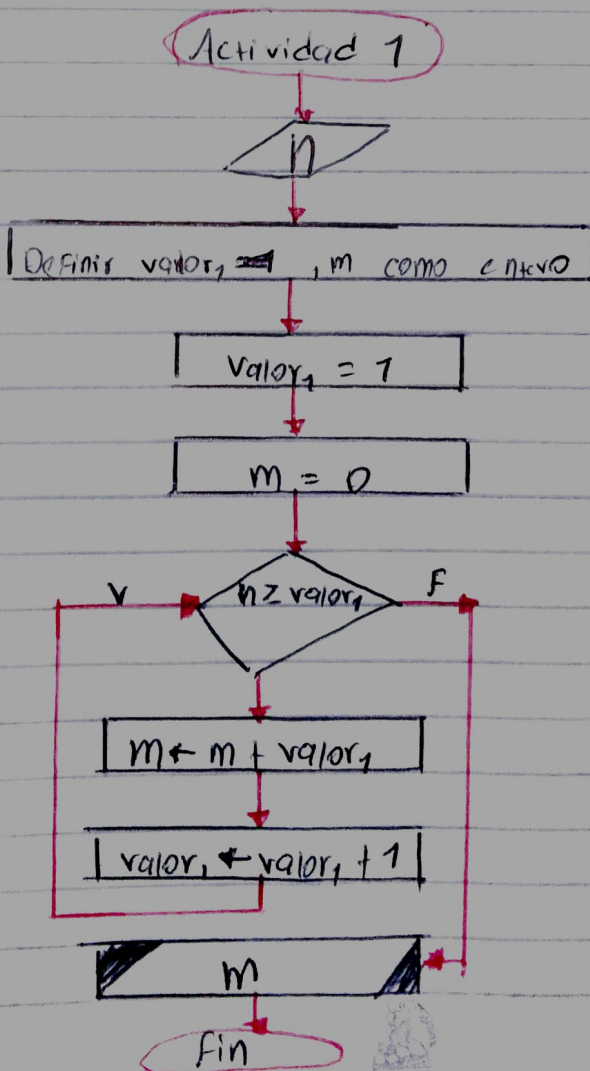 Actividad 1
n
Definir valor₁ , m como entero
Valor₁ = 1
m = 0
n ≥ valor₁
V
F
m ← m + valor₁
valor₁ ← valor₁ + 1
m
Fin